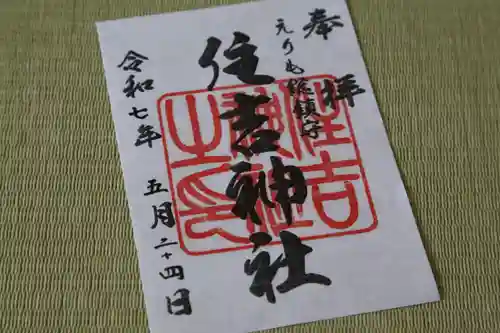 奉拝
えりも総鎮守
住吉神社
令和七年 五月二十四日
住吉神社之印